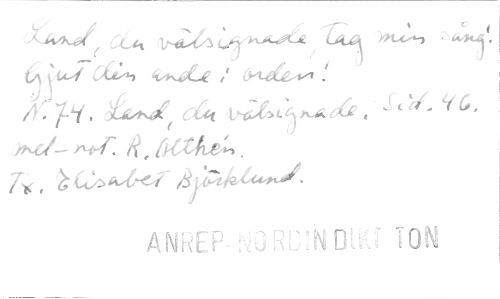 Land, du välsignade, tag min sång!
Gjut din ande i orden!
N. 74. Land, du välsignade. Sid. 46.
mel-not. R. Althén.
Tx. Elisabet Björklund.
ANREP-NORDIN DIKT TON